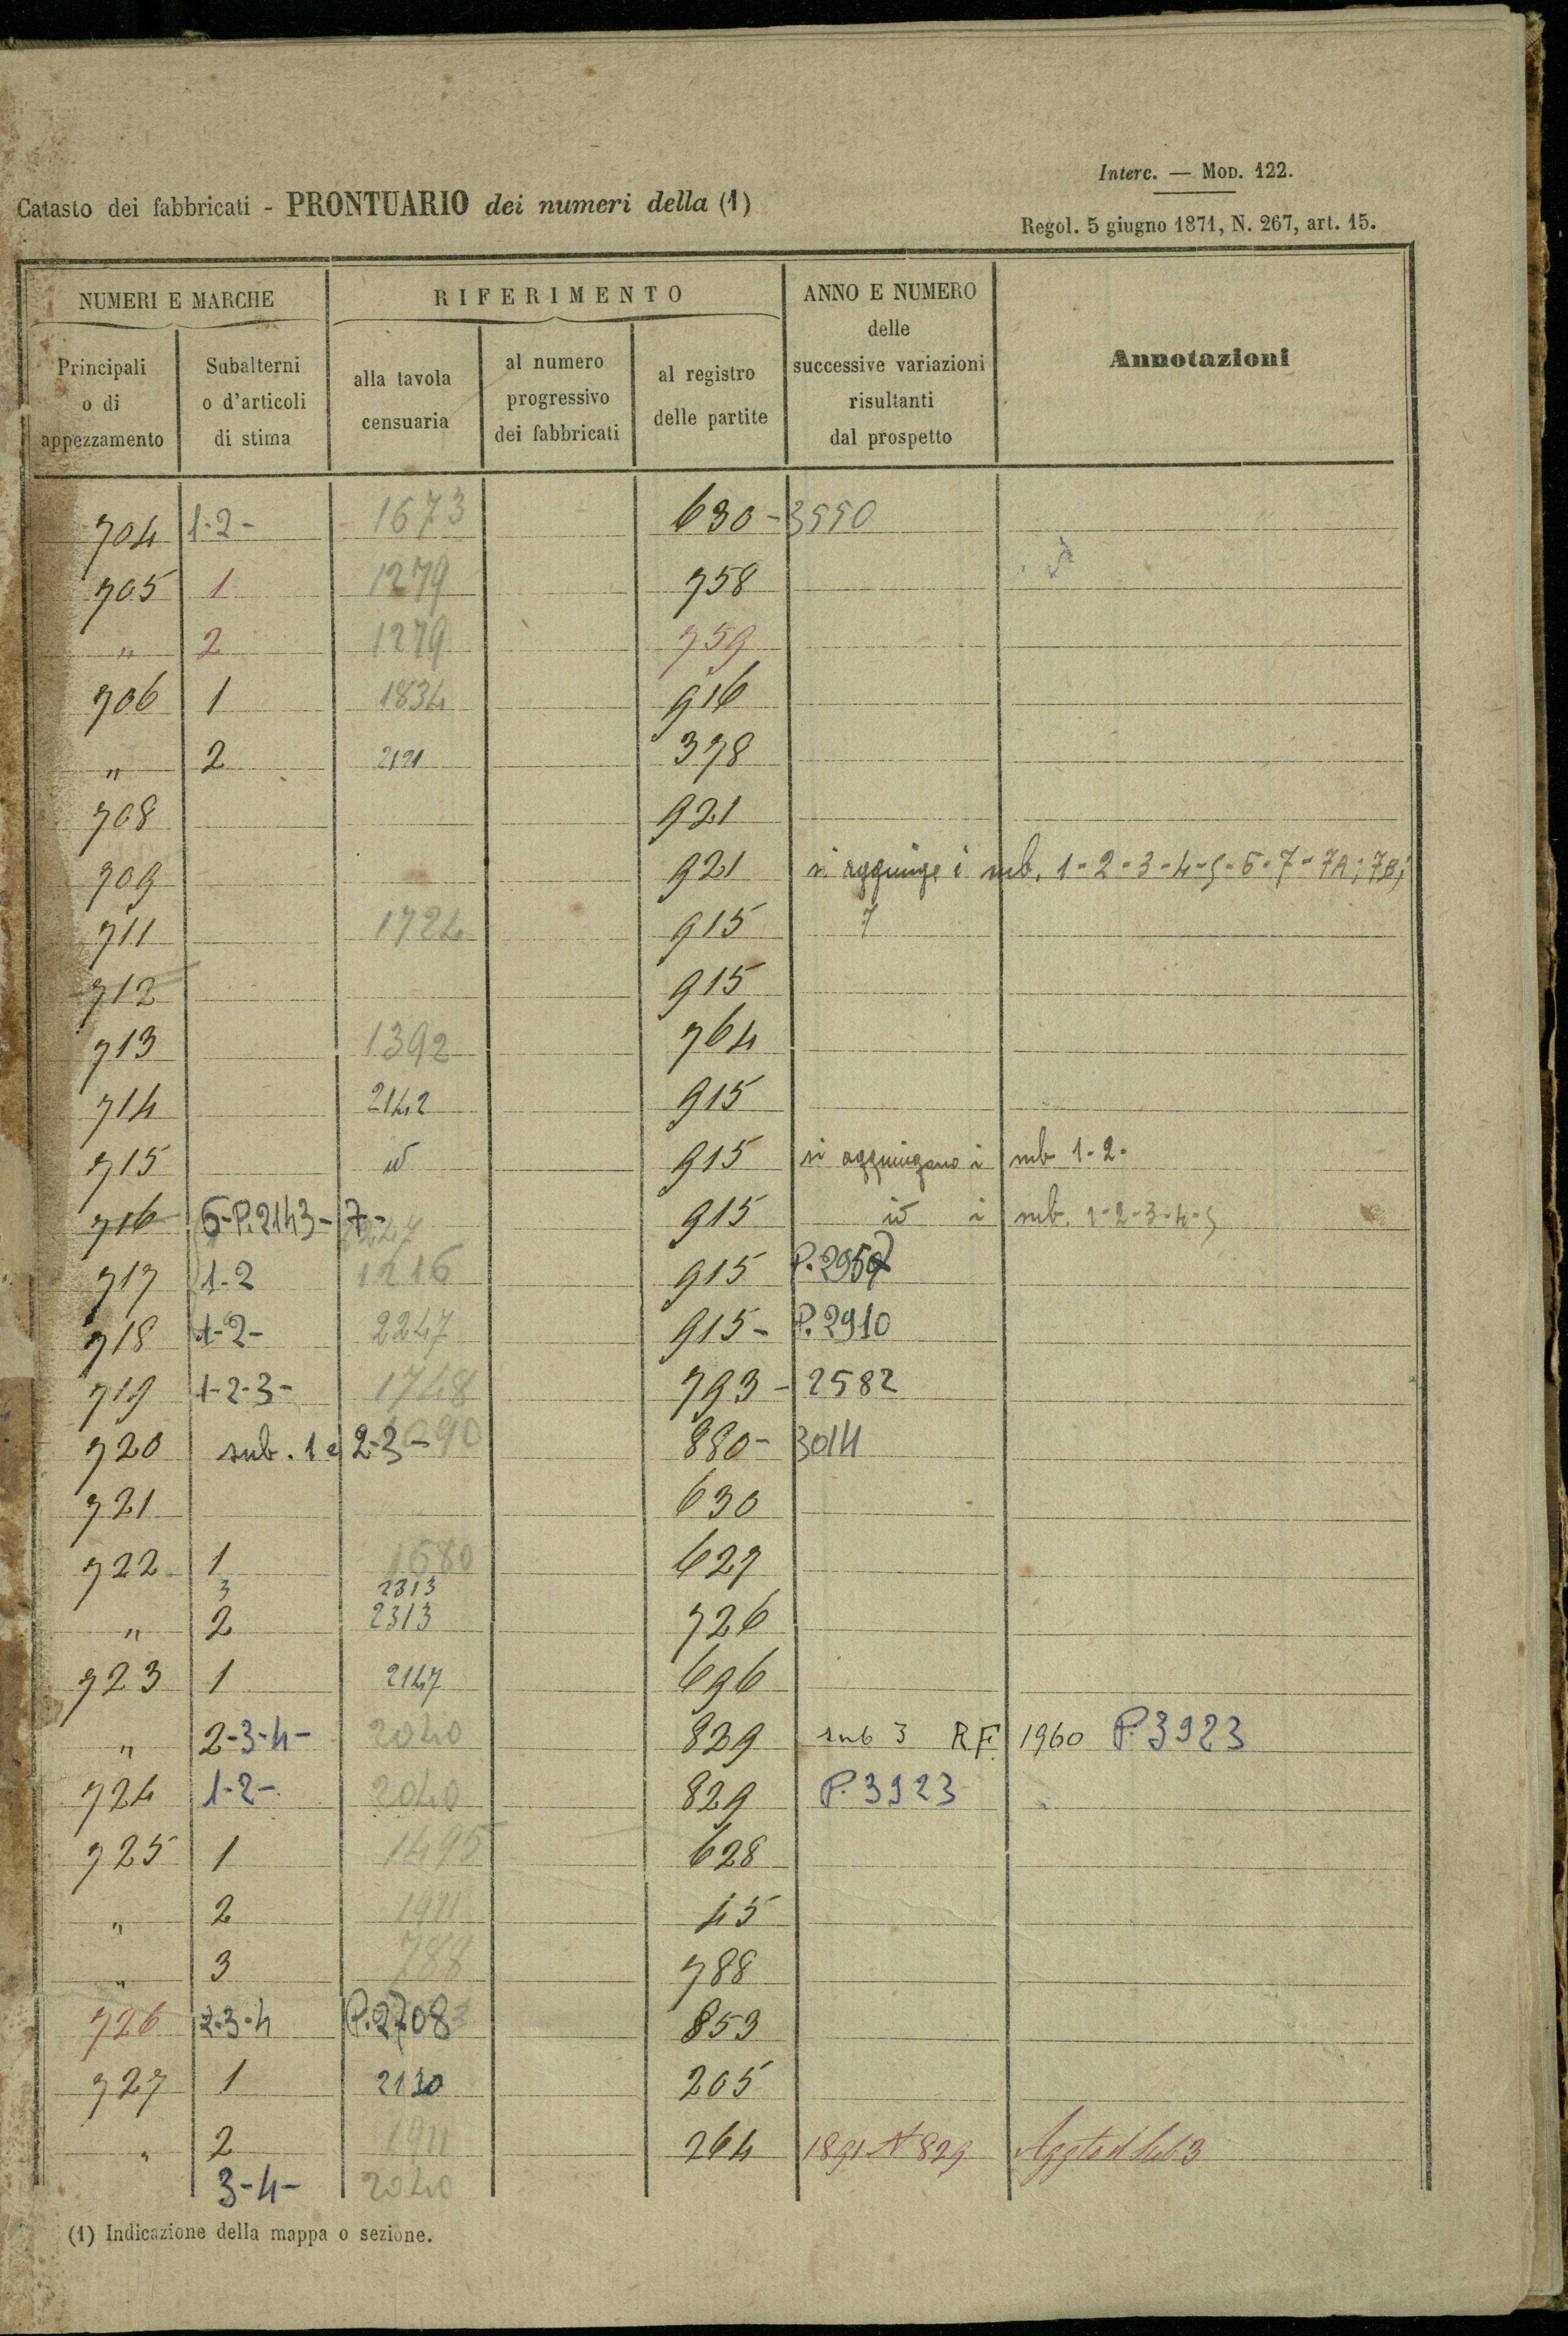 Interc. — MOD. 122.
Catasto dei fabbricati - PRONTUARIO dei numeri della (1)
Regol. 5 giugno 1871, N. 267, art. 15.
NUMERI E MARCHE
RIFERIMENTO
ANNO E NUMERO
delle
successive variazioni
risultanti
dal prospetto
Annotazioni
Principali
o di
appezzamento
Subalterni
o d'articoli
di stima
alla tavola
censuaria
al numero
progressivo
dei fabbricati
al registro
delle partite
704 1-2- 1673 630 - 3550
705 1 1279 758
" 2 1279 759
706 1 1834 916
" 2 2121 378
708 921
709 921 si aggiunge i sub. 1-2-3-4-5-6-7-7A; 7B;
711 1724 915 7
712 915
713 1392 764
714 2142 915
715 id 915 si aggiungano i sub 1-2-
716 6-P.2143-7- 915 id i sub. 1-2-3-4-5
717 1-2 1216 915 P.2957
718 1-2- 2247 915- P.2910
719 1-2-3- 1748 793 - 2582
720 sub. 1 e 2-3- 880- 3014
721 630
722 1 1680 627
3 2313
" 2 2313 726
723 1 2147 696
" 2-3-4- 2040 829 sub 3 R.F. 1960 P.3923
724 1-2- 2040 829 P.3923
725 1 1495 628
" 2 1911 45
" 3 788 788
726 2-3-4 P.2708 853
727 1 2130 205
" 2 1911 264 1891 N 829 Aggto il Sub 3
3-4- 2040
(1) Indicazione della mappa o sezione.